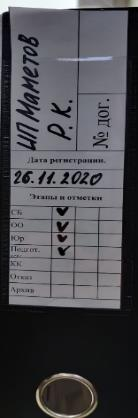 ИП Маметов
Р. К.
№ дог.
Дата регистрации.
26.11.2020
Этапы и отметки
СБ
ОО
Юр
Подгот.
КК
Отказ
Архив